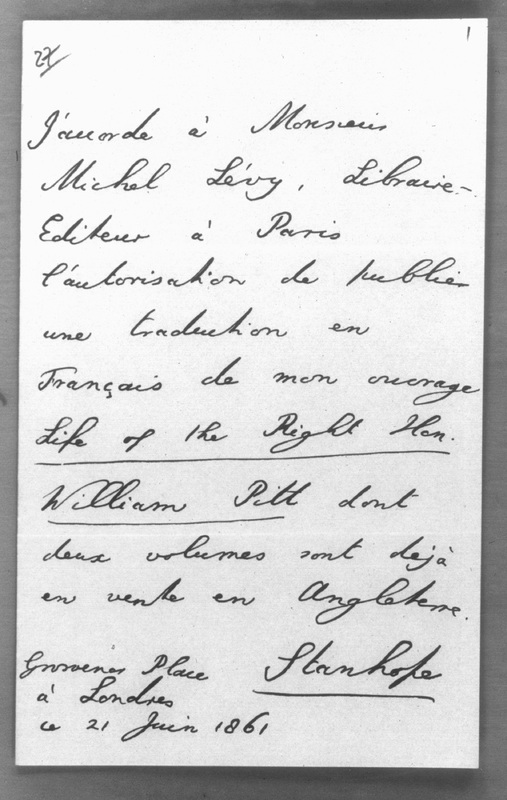 1
J'accorde à Monsieur
Michel Lévy, Libraire-
Editeur à Paris
l'autorisation de publier
une traduction en
Français de mon ouvrage
Life of the Right Hon.
William Pitt dont
deux volumes sont dejà
en vente en Angleterre.
Stanhope
Grosvenor Place
à Londres
ce 21 Juin 1861